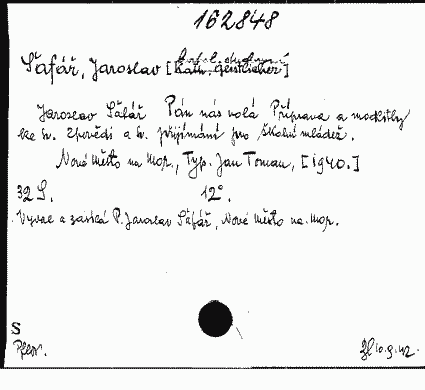 162848
Šafář, Jaroslav [Kath. Geistlicher]
Jaroslav Šafář Pán nás volá Příprava a modlitby
ke sv. zpovědi a sv. přijímání pro školní mládež.
Nové Město na Mor., Typ. Jan Toman, [1940.]
32 S. 12°.
Vyd. a zaslá P. Jaroslav Šafář, Nové Město na Mor.
S
10.9.42.